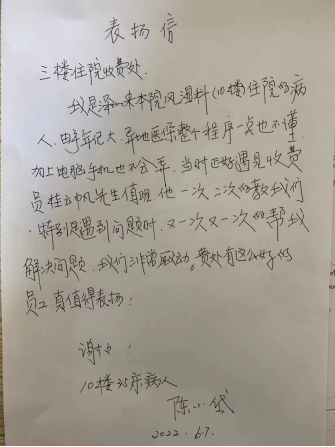 表扬信
三楼住院收费处:
我是深一来本院风湿科(10楼住院的病
人,由于年记大,异地医保整个程序一点也不懂.
加上电脑手机也不会弄,当时正好遇见收费
员桂云帆先生值班,他一次二次的教我们
,特别是遇到问题时,又一次又一次的帮我
解决问题,我们非常感动。贵处有这么好的
员工,真值得表扬!
谢谢!
10楼35床病人
陈小岱
2022.6.7.